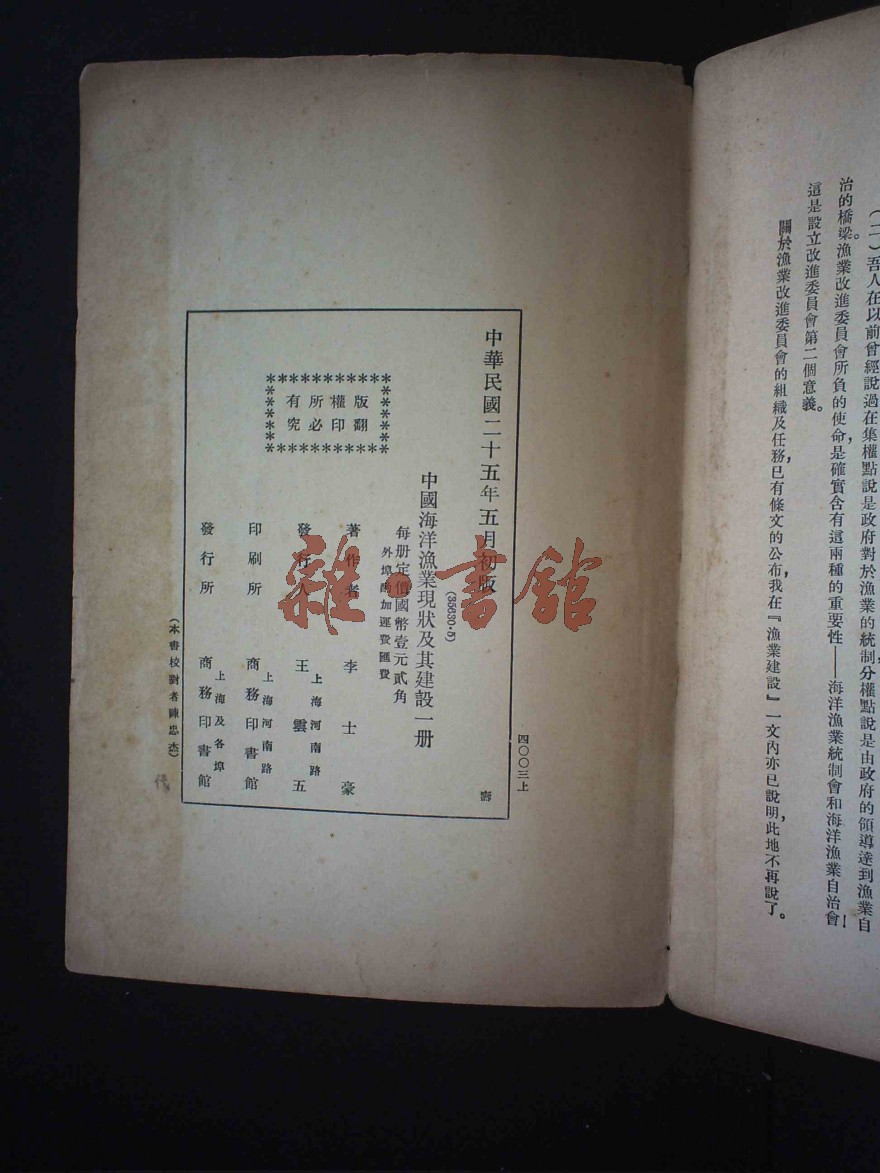 （二）吾人在以前曾經說過在集權點說是政府對於漁業的統制分權點說是由政府的領導達到漁業自
治的橋梁。漁業改進委員會所負的使命，是確實含有這兩種的重要性——海洋漁業統制會和海洋漁業自治會！
這是設立改進委員會第二個意義。
關於漁業改進委員會的組織及任務，已有條文的公布，我在『漁業建設』一文內亦已說明，此地不再說了。
四〇〇三上
壽
中華民國二十五年五月初版
(35630·5)
中國海洋漁業現狀及其建設一册
每册定價國幣壹元貳角
外埠酌加運費匯費
版權所有
翻印必究
著作者 李士豪
發行人 王雲五
上海河南路
印刷所 商務印書館
上海河南路
發行所 商務印書館
上海及各埠
（本書校對者陳忠杰）
代
雜·書館